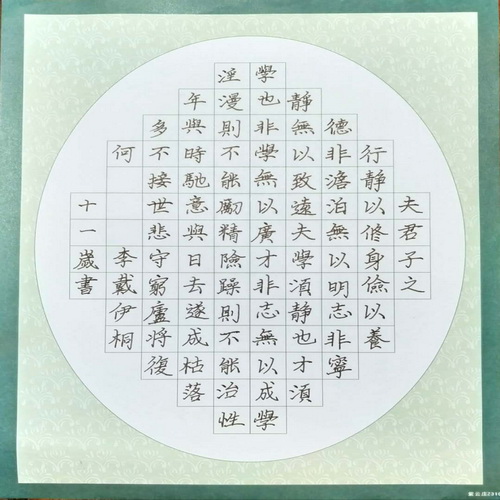 夫君子之
行靜以修身儉以養
德非澹泊無以明志非寧
靜無以致遠夫學湏靜也才湏
學也非學無以廣才非志無以成學
淫漫則不能勵精險躁則不能治性
年與時馳意與日去遂成枯落
多不接世悲守窮廬將復
何 李戴伊桐
十一歲書